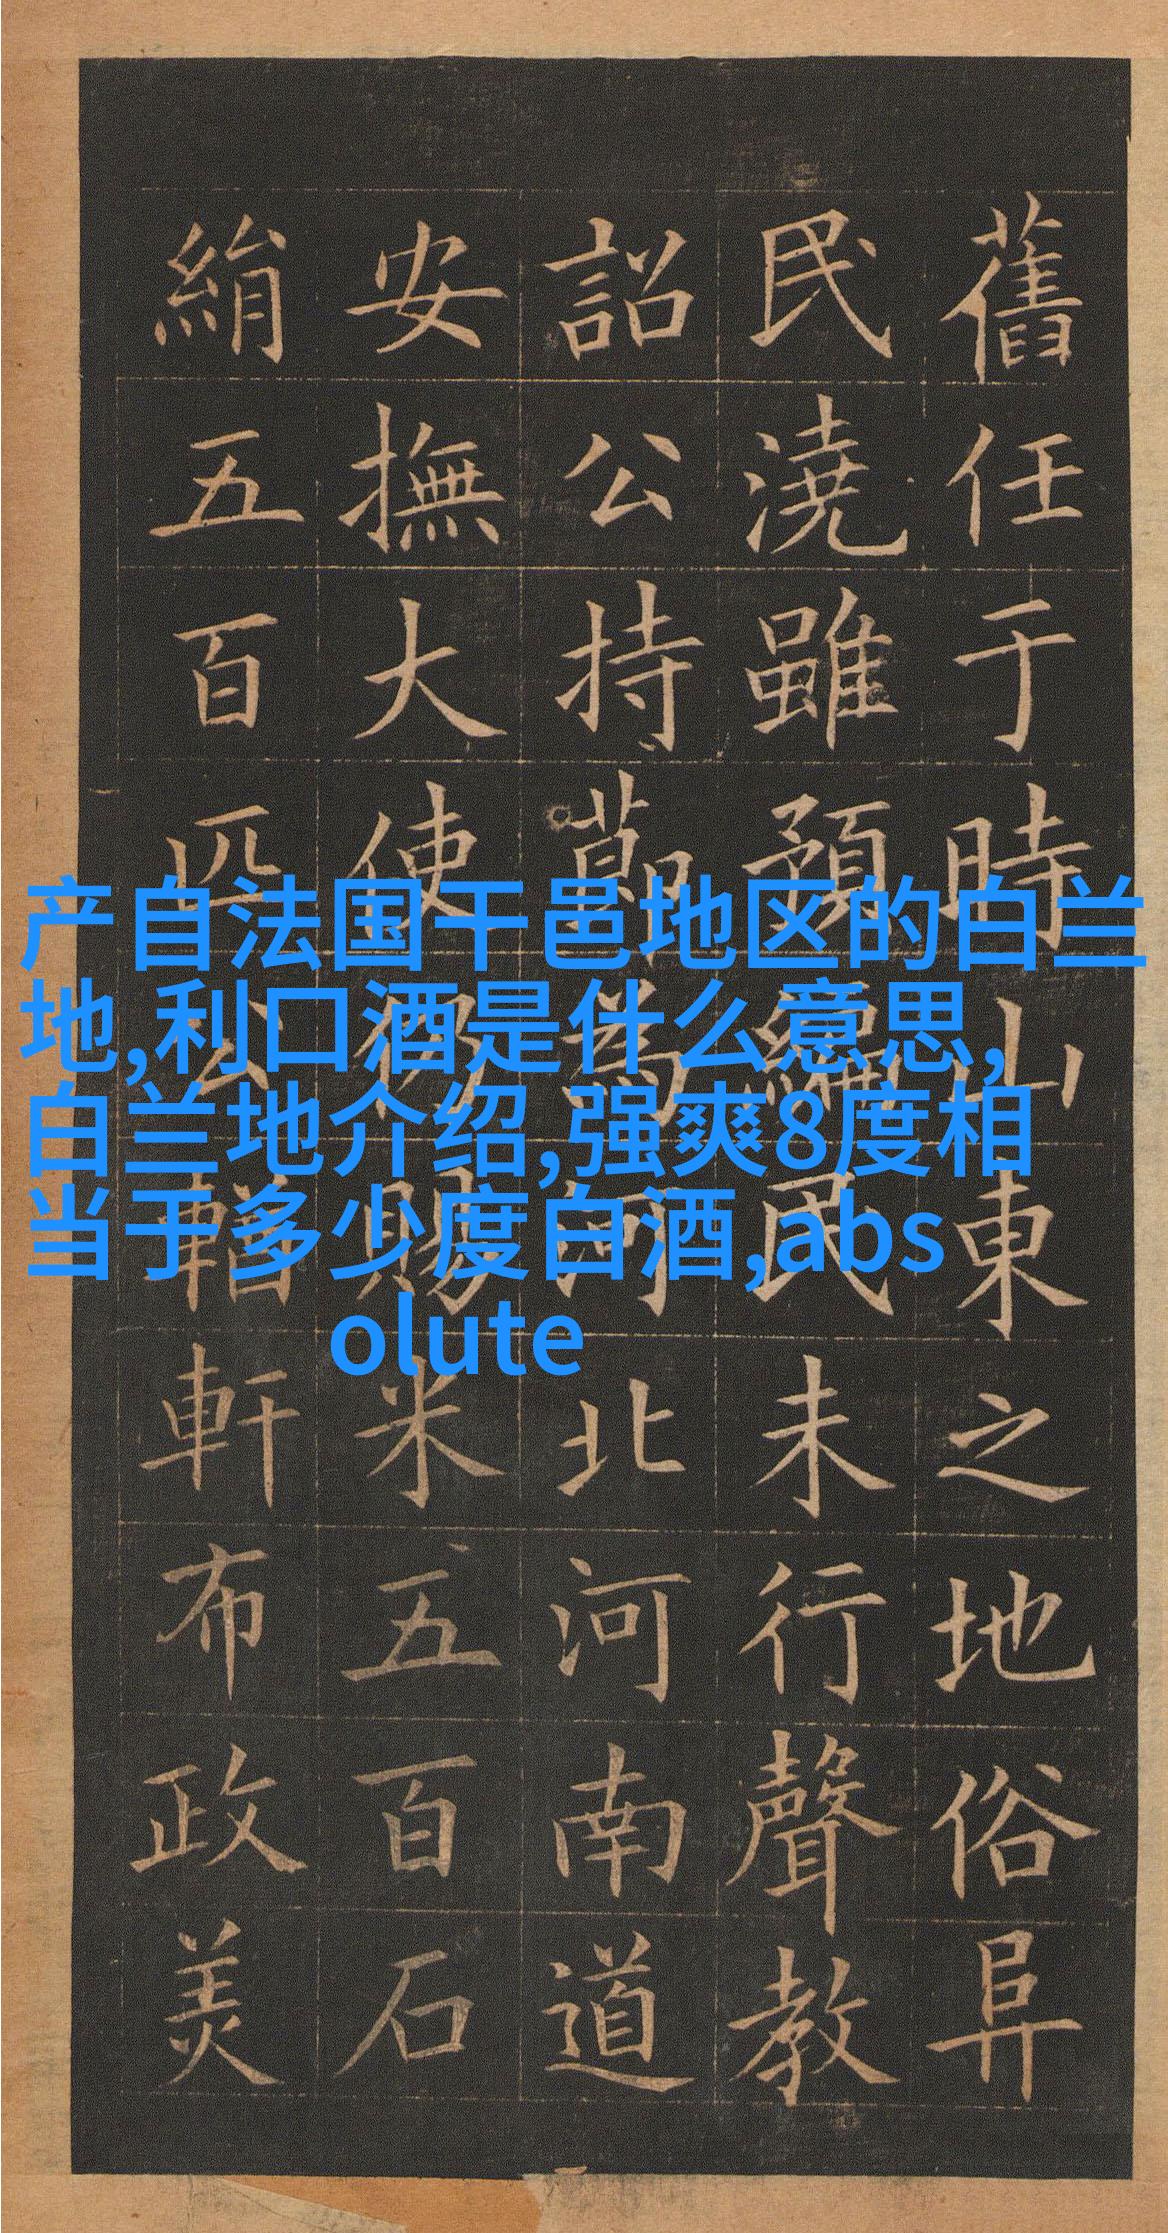 舊任于時山東之地俗阜
民澆雖預編民未行聲教
詔公持節爲河北河南道
安撫大使仍賜米五百石
絹五百匹公輶軒布政美
产自法国干邑地区的白兰
地,利口酒是什么意思,
白兰地介绍,强爽8度相
当于多少度白酒,abs
olute